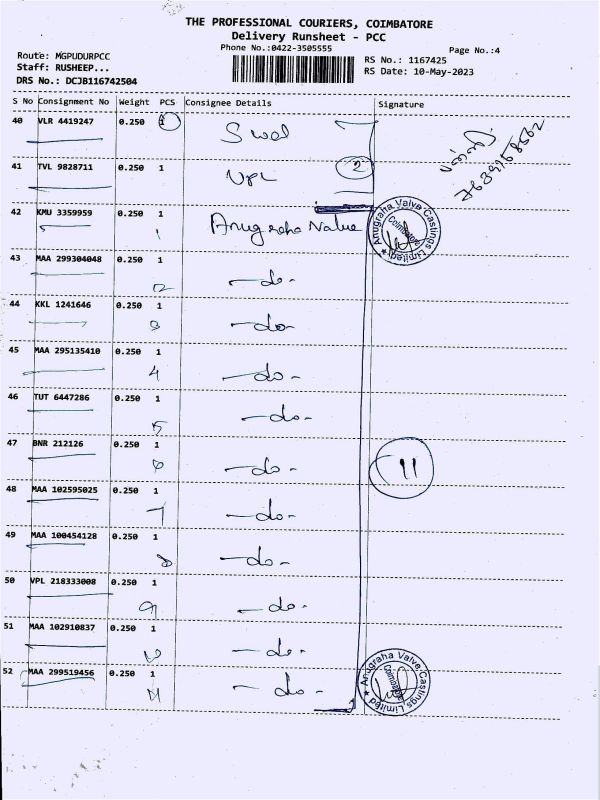 THE PROFESSIONAL COURIERS, COIMBATORE
Delivery Runsheet - PCC
Phone No.:0422-3505555
Page No.:4
Route: MGPUDURPCC
Staff: RUSHEEP...
DRS No.: DCJB116742504
RS No.: 1167425
RS Date: 10-May-2023
S No Consignment No Weight PCS Consignee Details Signature
40 VLR 4419247 0.250 1
41 TVL 9828711 0.250 1 VPL 2
7639158562
42 KMU 3359959 0.250 1 Anugraha Valve
1
Anugraha Valve Castings Limited
Coimbatore
43 MAA 299304048 0.250 1 -do-
2
44 KKL 1241646 0.250 1 -do-
3
45 MAA 295135410 0.250 1 -do-
4
46 TUT 6447286 0.250 1 -do-
5
47 BNR 212126 0.250 1 -do- 11
6
48 MAA 102595025 0.250 1 -do-
7
49 MAA 100454128 0.250 1 -do-
8
50 VPL 218333008 0.250 1 -do-
9
51 MAA 102910837 0.250 1 -do-
10
52 MAA 299519456 0.250 1 -do-
11
Anugraha Valve Castings Limited
Coimbatore